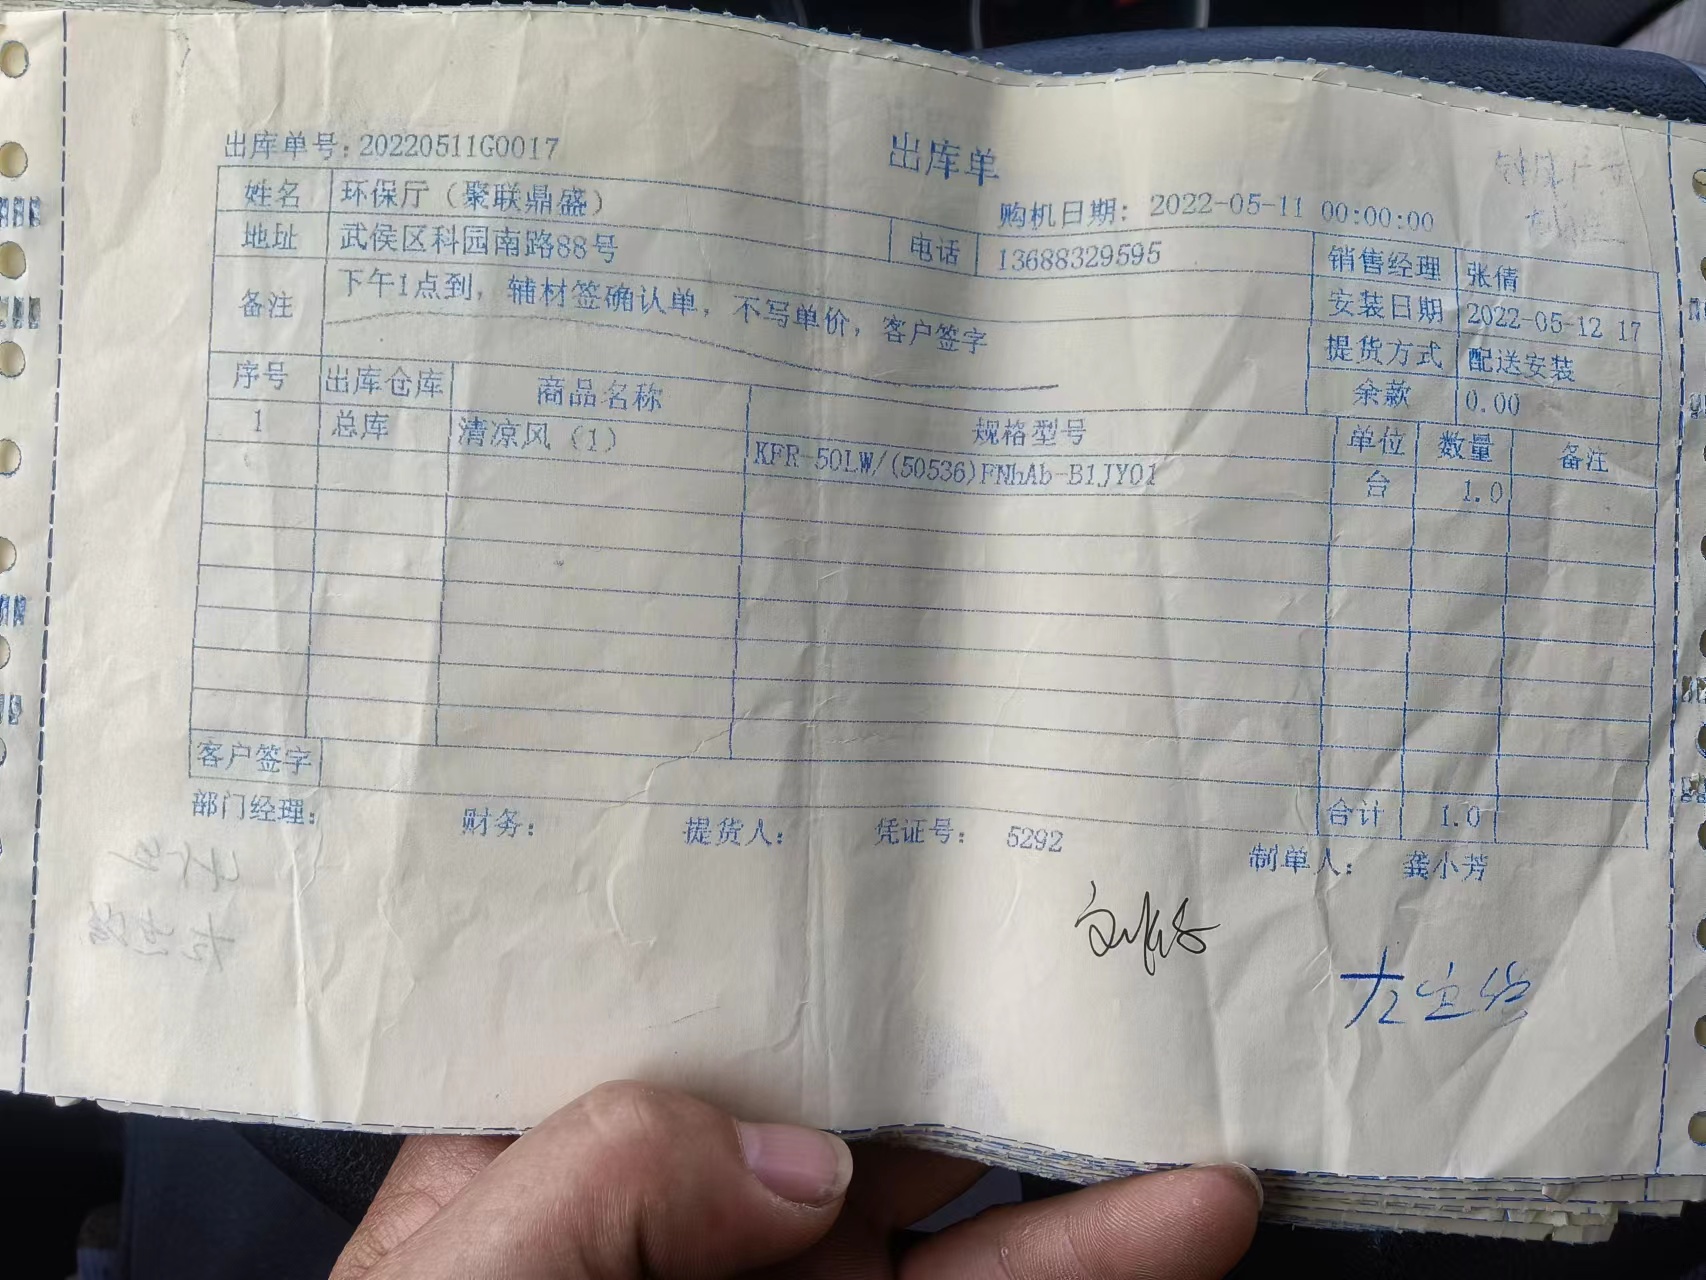 出库单
出库单号：20220511G0017
购机日期：2022-05-11 00:00:00
姓名 环保厅（聚联鼎盛）
地址 武侯区科园南路88号 电话 13688329595 销售经理 张倩
备注 下午1点到，辅材签确认单，不写单价，客户签字 安装日期 2022-05-12 17
提货方式 配送安装
余款 0.00
序号 出库仓库 商品名称 规格型号 单位 数量 备注
1 总库 清凉风（1） KFR-50LW/(50536)FNhAb-B1JY01 台 1.0
客户签字 合计 1.0
部门经理： 财务： 提货人： 凭证号： 5292 制单人： 龚小芳